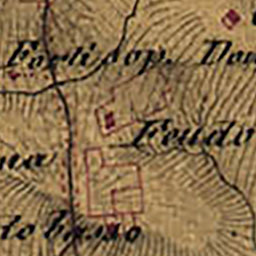 Forli sop. Don
Feudo
na
to basso